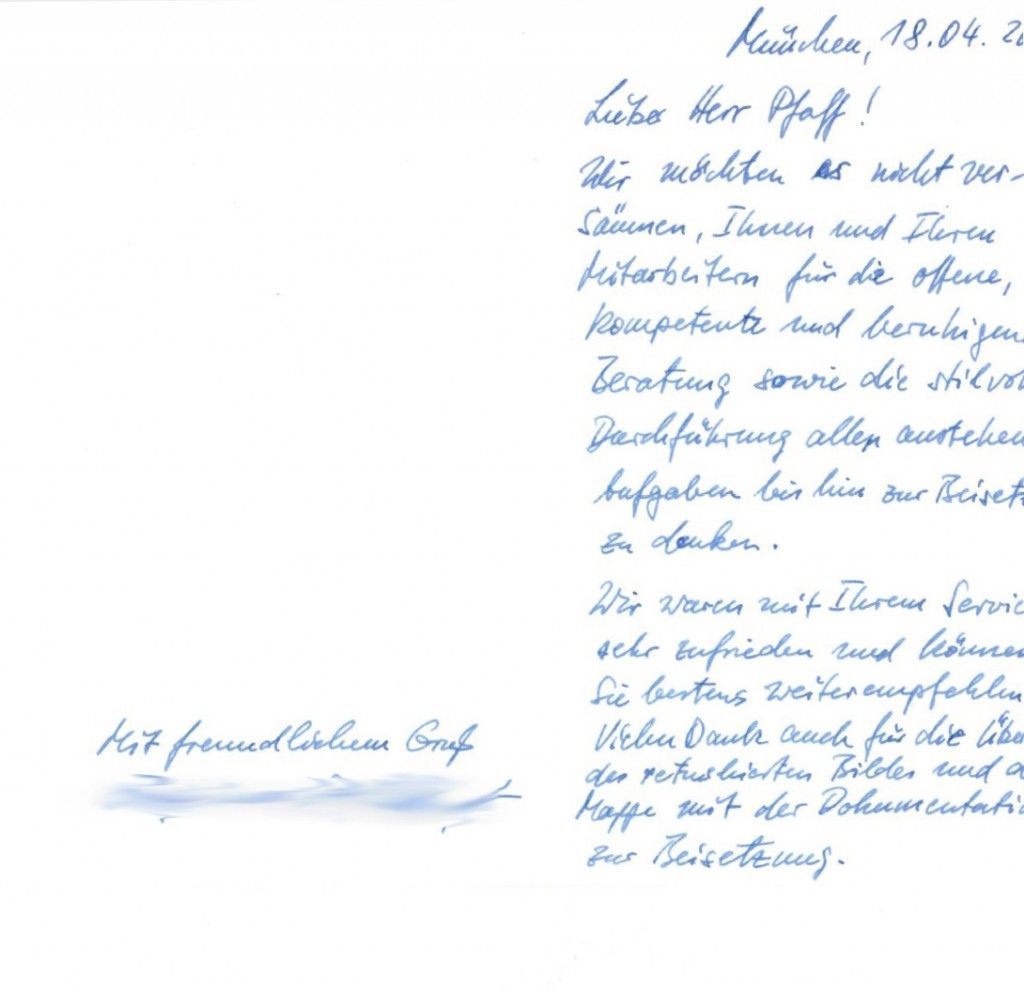 München, 18.04. 20
Lieber Herr Pfaff!
Wir möchten es nicht ver-
säumen, Ihnen und Ihren
Mitarbeitern für die offene,
kompetente und beruhigen
Beratung sowie die stilvol
Durchführung aller anstehen
Aufgaben bis hin zur Beiset
zu danken.
Wir waren mit Ihrem Servic
sehr zufrieden und können
Sie bestens weiterempfehlen
Vielen Dank auch für die Übe
des retuschierten Bildes und d
Mappe mit der Dokumentati
zur Beisetzung.
Mit freundlichem Gruß